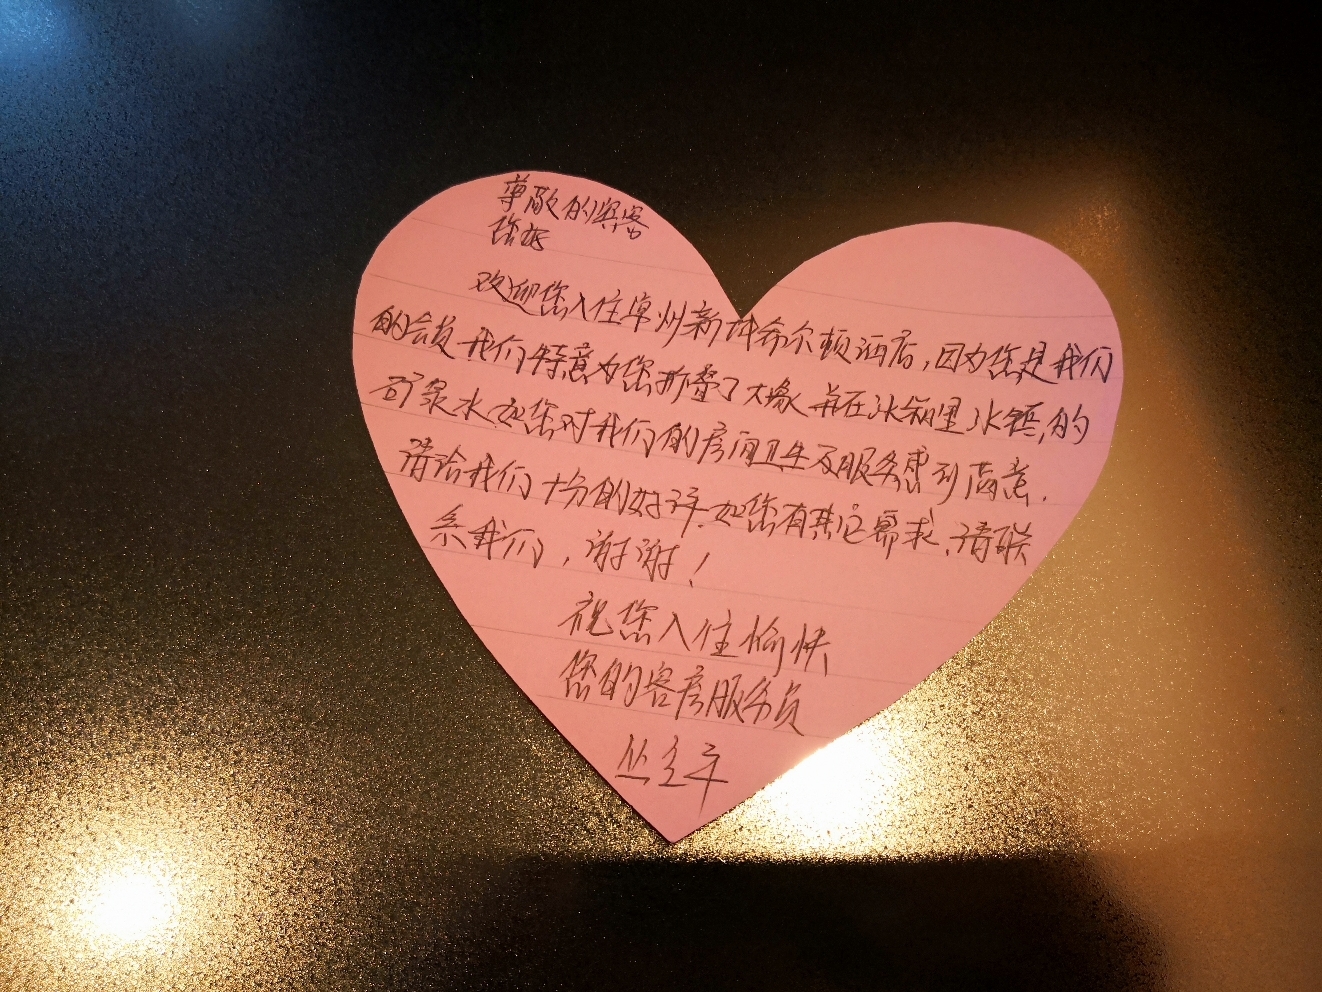 尊敬的宾客
您好
欢迎您入住漳州新城希尔顿酒店,因为您是我们
的会员我们特意为您折叠了大象并在冰箱里冰镇的
矿泉水如您对我们的房间卫生及服务感到满意.
请给我们十分的好评.如您有其它需求,请联
系我们,谢谢!
祝您入住愉快
您的客房服务员